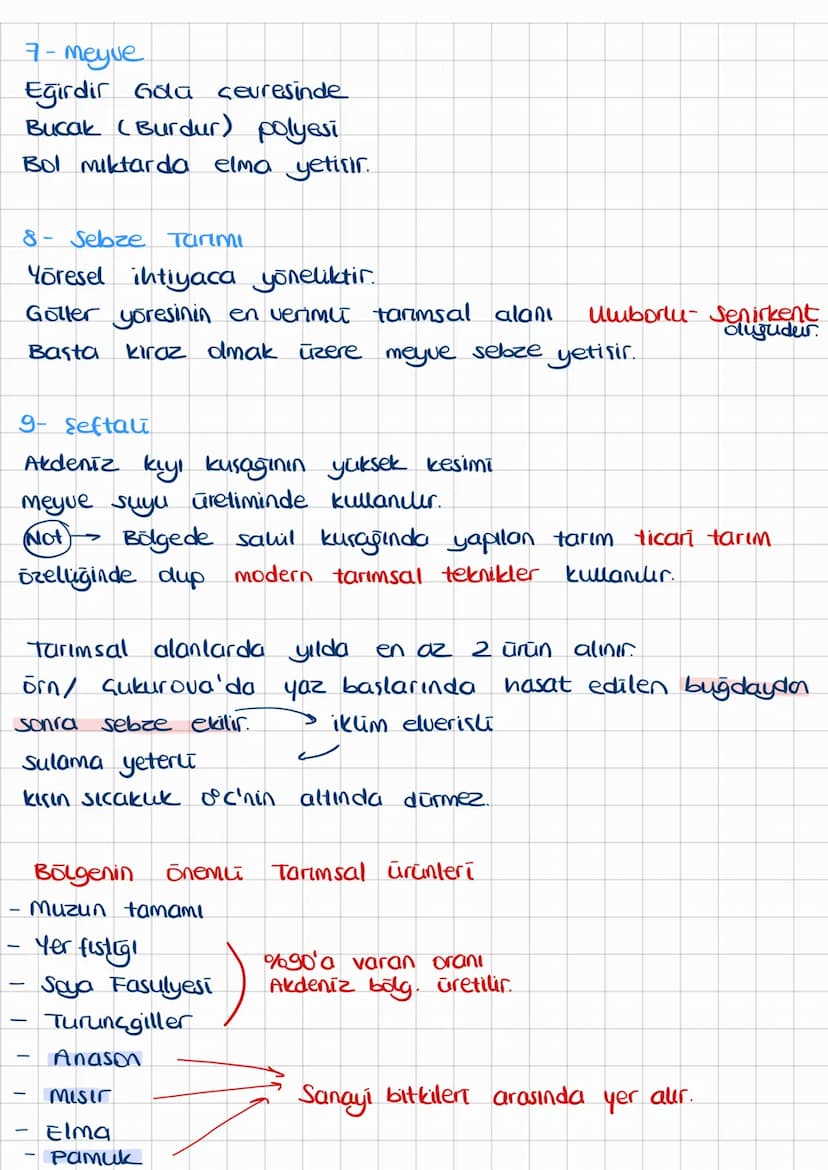 7- Meyve
Eğirdir Gölü çevresinde
Bucak (Burdur) polyesi
Bol miktarda elma yetişir.
8- Sebze Tarımı
Yöresel ihtiyaca yöneliktir.
Göller yöresinin en verimli tarımsal alanı Uluborlu- Senirkent
oluğudur.
Başta kiraz olmak üzere meyve sebze yetişir.
9- Şeftali
Akdeniz kıyı kuşağının yüksek kesimi
meyve suyu üretiminde kullanılır.
Not → Bölgede sahil kuşağında yapılan tarım ticari tarım
özelliğinde olup modern tarımsal teknikler kullanılır.
Tarımsal alanlarda yılda en az 2 ürün alınır.
örn/ Çukurova'da yaz başlarında hasat edilen buğdaydan
sonra sebze ekilir. → iklim elverişli
sulama yeterli
kışın sıcaklık 0°C'nin altında dürmez.
Bölgenin önemli Tarımsal ürünleri
- Muzun tamamı
- Yer fıstığı
- Soya Fasulyesi
- Turunçgiller
%90'a varan oranı
Akdeniz bölg. üretilir.
- Anason
- Mısır
- Elma
- Pamuk
Sanayi bitkileri arasında yer alır.